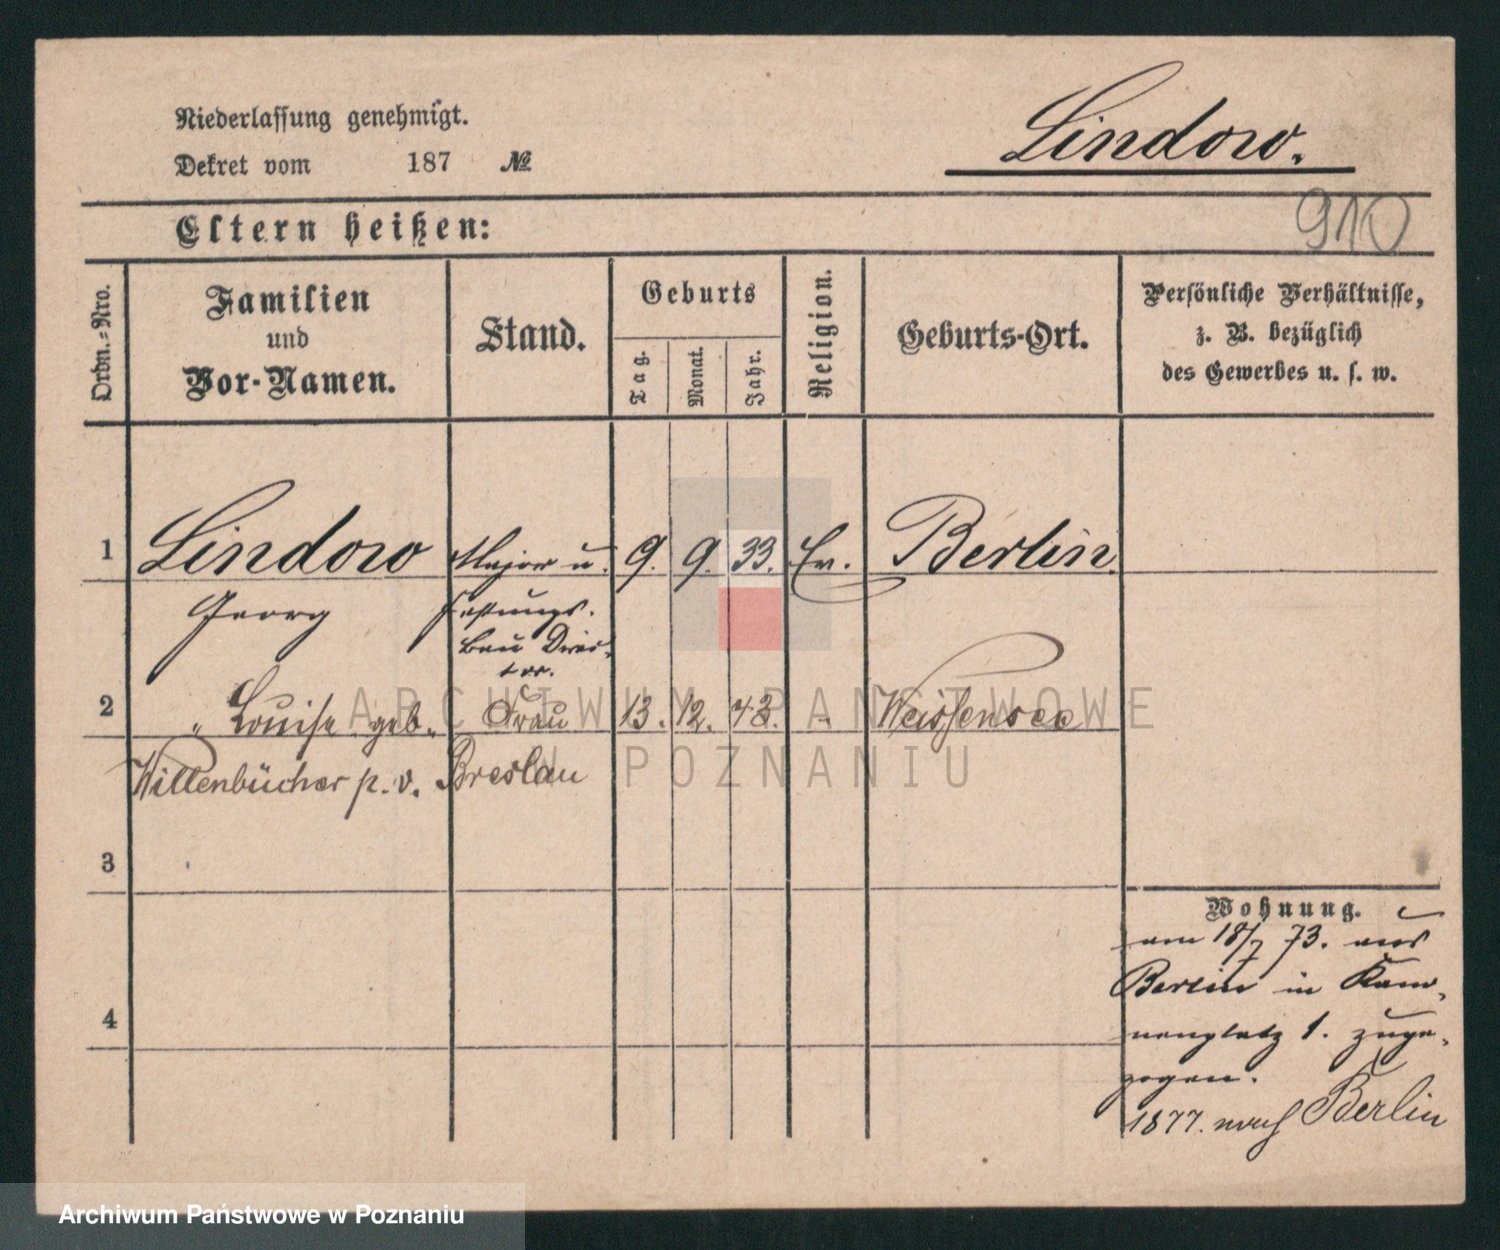 Niederlassung genehmigt.
Dekret vom 187 №
Lindow.
910
Eltern heißen:
Ordn.-Nro.
Familien
und
Vor-Namen.
Stand.
Geburts
Tag.
Monat.
Jahr.
Religion.
Geburts-Ort.
Persönliche Verhältnisse,
z. B. bezüglich
des Gewerbes u. s. w.
1 Lindow Major u. 9. 9. 33. Ev. Berlin.
Georg Festungs-
Bau Direc-
tor.
2 " Louise geb. Frau 13. 12. 43. " Weissensee
Willenbücher p. v. Breslau
3
4
Wohnung.
am 18/7 73. aus
Berlin in Kano-
nenplatz 1. zuge-
zogen.
1877. nach Berlin
ARCHIWUM PAŃSTWOWE
W POZNANIU
Archiwum Państwowe w Poznaniu